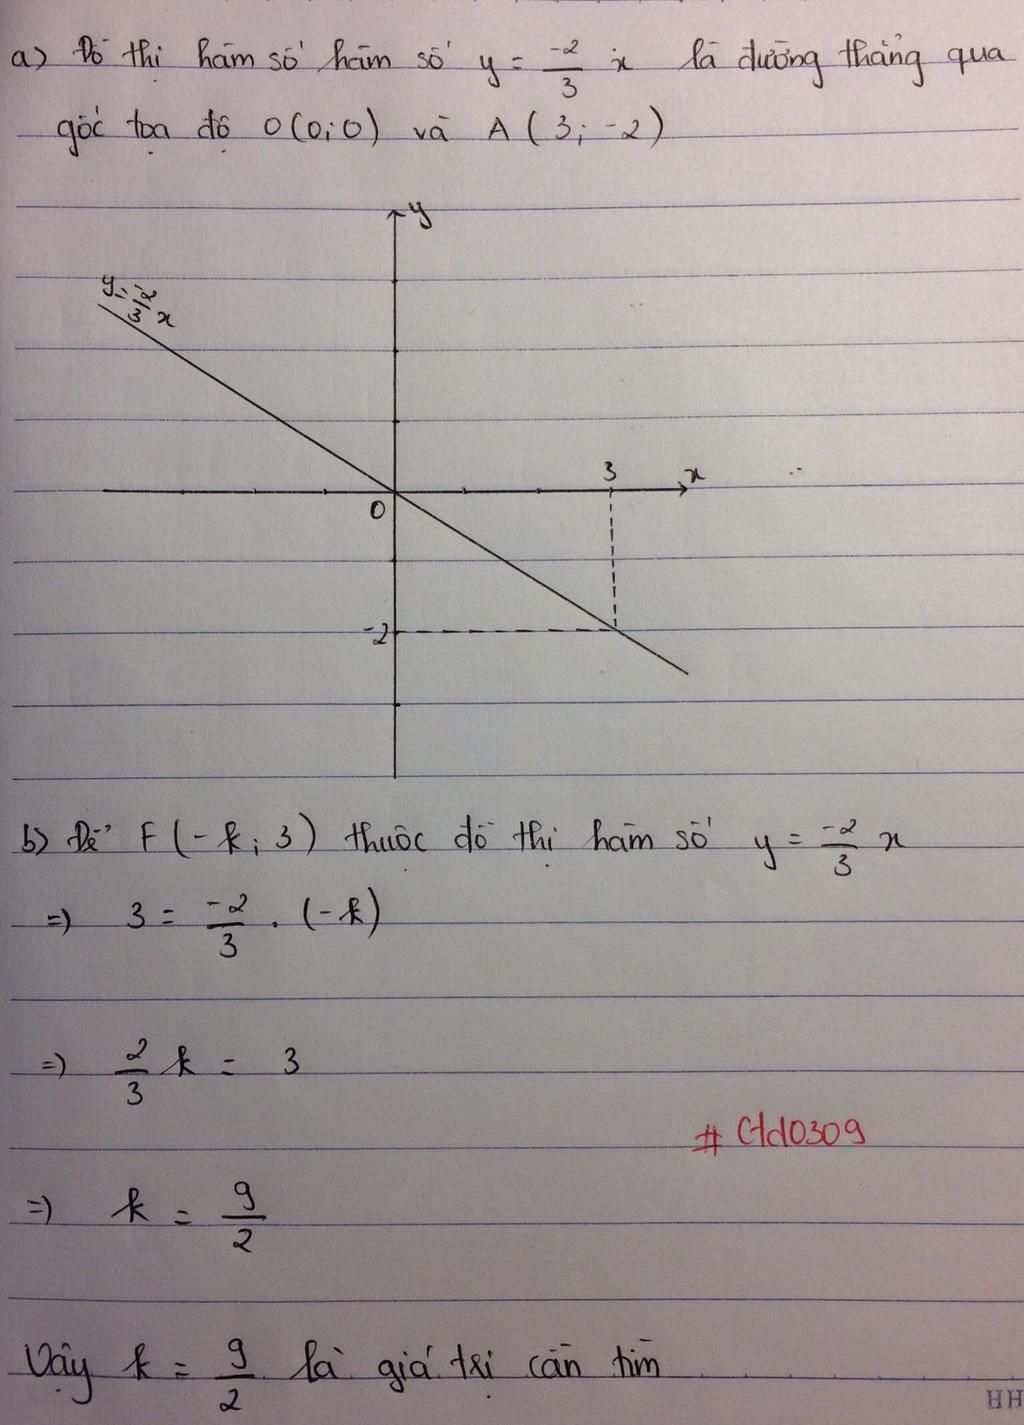 a) Đồ thị hàm số hàm số y = -2/3 x là đường thẳng qua
gốc tọa độ O(0;0) và A(3;-2)
y
y = -2/3 x
3 x
O
-2
b) Để F(-k;3) thuộc đồ thị hàm số y = -2/3 x
=> 3 = -2/3 . (-k)
=> 2/3 k = 3
# Ctd0309
=> k = 9/2
Vậy k = 9/2 là giá trị cần tìm
HH